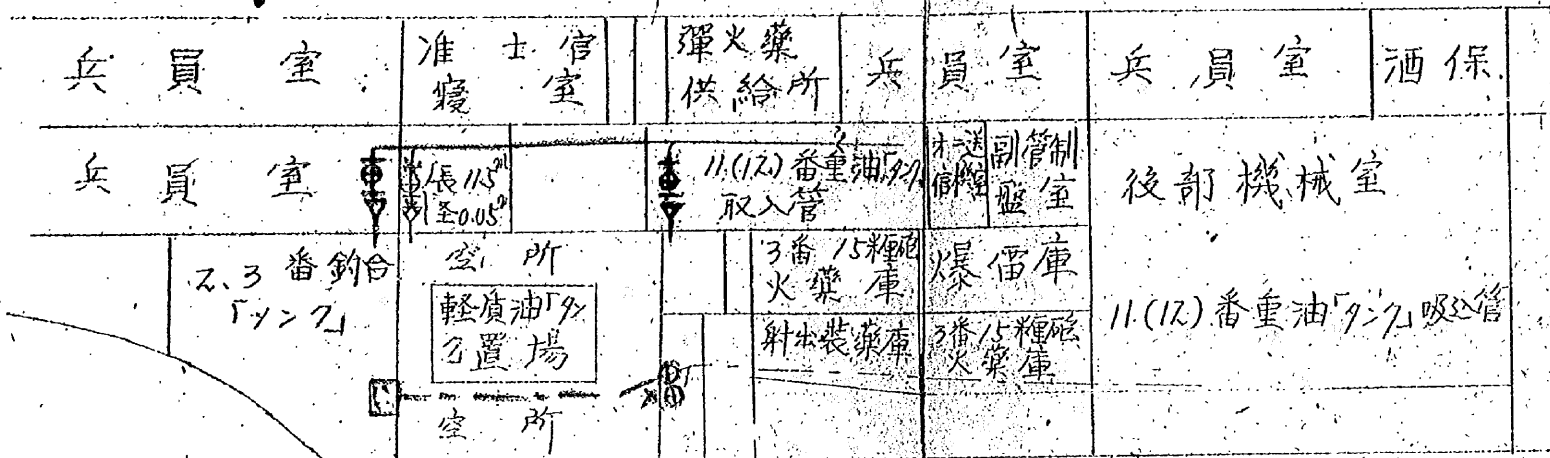 兵員室
准士官
寝室
彈火藥
供給所
兵員室
兵員室
酒保
兵員室
長11.5
径0.05
11.(12)番重油「タンク」
取入管
送信機室
副管制
盤室
後部機械室
2、3番釣合
「タンク」
空所
軽質油「タン
ク置場
空所
3番15糎砲
火藥庫
射出装藥庫
爆雷庫
3番15糎砲
火藥庫
11.(12)番重油「タンク」吸込管